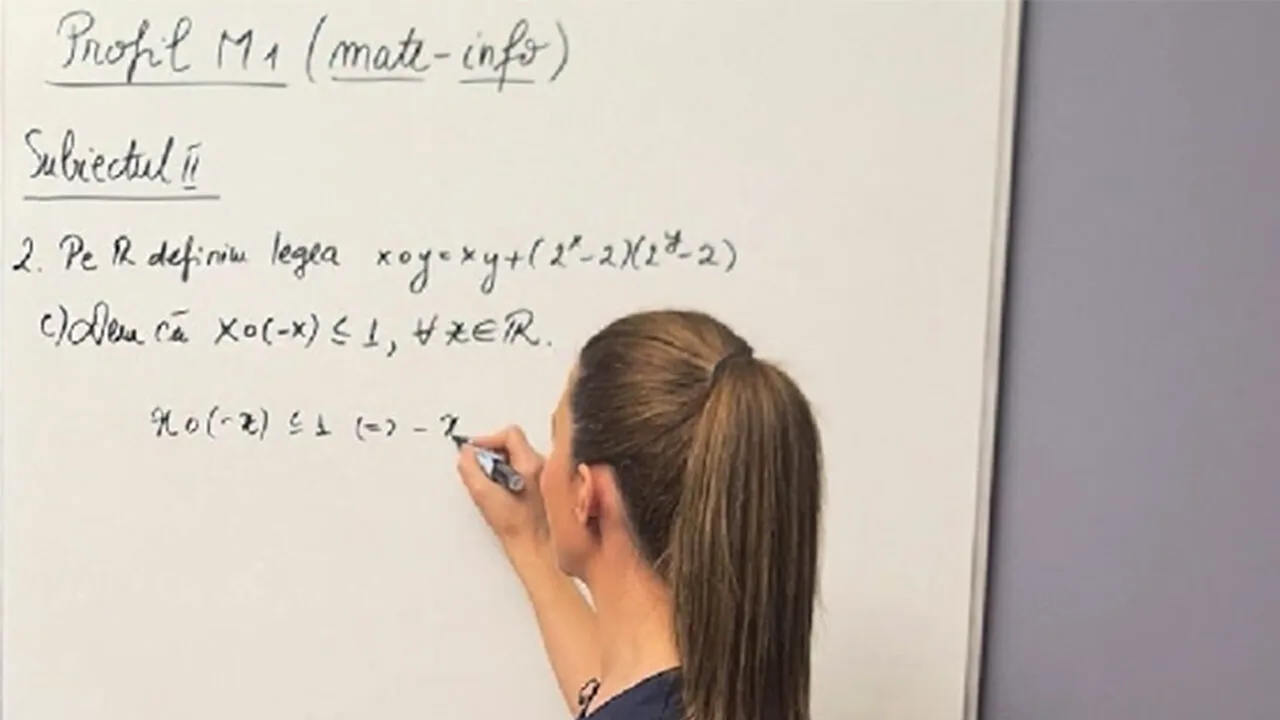 Profil M1 (mate-info)
Subiectul II
2. Pe ℝ definim legea x∘y=xy+(2ˣ-2)(2ʸ-2)
c) Dem că x∘(-x) ≤ 1, ∀ x∈ℝ.
x∘(-x) ≤ 1 (=) -x